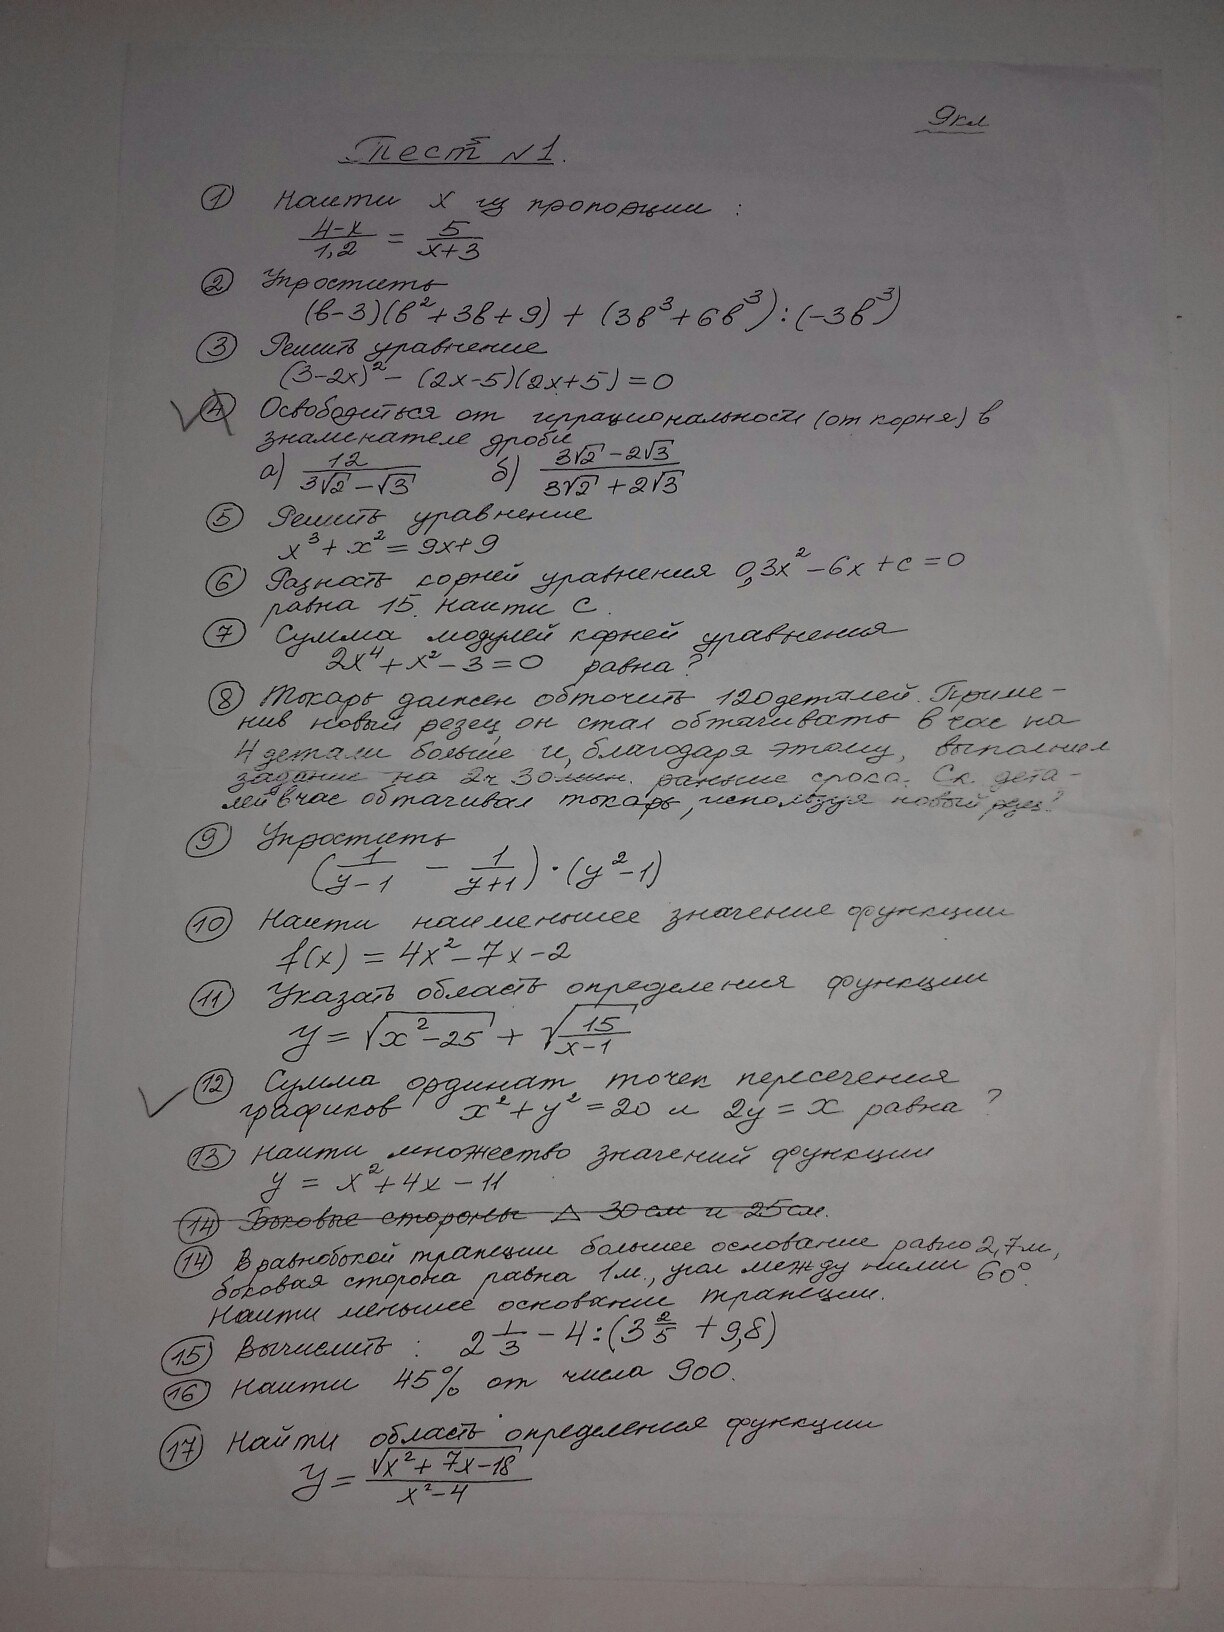 9кл
Тест №1.
1 Найти x из пропорции:
(4-x)/1,2 = 5/(x+3)
2 Упростить
(b-3)(b²+3b+9) + (3b³+6b³):(-3b³)
3 Решить уравнение
(3-2x)² - (2x-5)(2x+5)=0
4 Освободиться от иррациональности (от корня) в
знаменателе дроби
а) 12/(3√2-√3) б) (3√2-2√3)/(3√2+2√3)
5 Решить уравнение
x³+x²=9x+9
6 Разность корней уравнения 0,3x²-6x+c=0
равна 15. Найти c.
7 Сумма модулей корней уравнения
2x⁴+x²-3=0 равна?
8 Токарь должен обточить 120 деталей. Приме-
нив новый резец, он стал обтачивать в час на
4 детали больше и, благодаря этому, выполнил
задание на 2ч 30мин. раньше срока. Ск. дета-
лей в час обтачивал токарь, используя новый резец?
9 Упростить
(1/(y-1) - 1/(y+1))·(y²-1)
10 Найти наименьшее значение функции
f(x) = 4x²-7x-2
11 Указать область определения функции
y=√(x²-25) + √(15/(x-1))
12 Сумма ординат точек пересечения
графиков x²+y²=20 и 2y=x равна?
13 Найти множество значений функции
y = x²+4x-11
14 Боковые стороны △ 30см и 25см.
14 В равнобокой трапеции большее основание равно 2,7м,
боковая сторона равна 1м., угол между ними 60°.
Найти меньшее основание трапеции.
15 Вычислить: 2 1/3 - 4:(3 2/5 + 9,8)
16 Найти 45% от числа 900.
17 Найти область определения функции
y=√(x²+7x-18)/(x²-4)